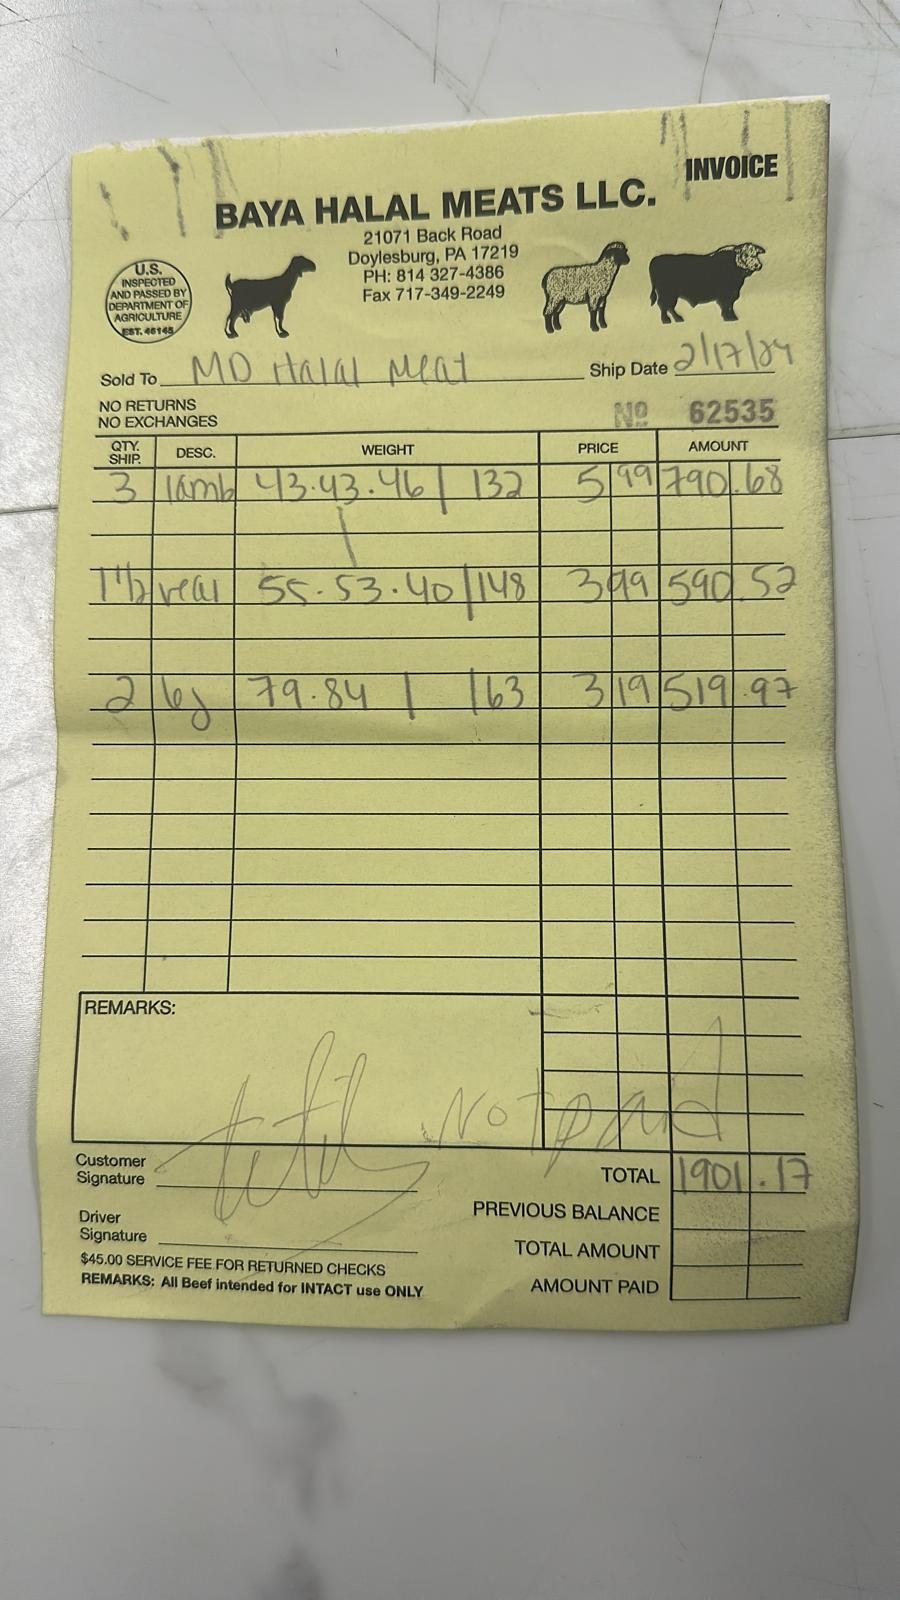 INVOICE
BAYA HALAL MEATS LLC.
21071 Back Road
Doylesburg, PA 17219
PH: 814 327-4386
Fax 717-349-2249
U.S.
INSPECTED
AND PASSED BY
DEPARTMENT OF
AGRICULTURE
EST. 46145
Sold To MD Halal Meat Ship Date 2/17/24
NO RETURNS
NO EXCHANGES
Nº 62535
QTY. SHIP. DESC. WEIGHT PRICE AMOUNT
3 lamb 43.43.46 / 132 5 99 790.68
1 1/2 veal 55.53.40 / 148 3 99 590.52
2 79.84 / 163 3 19 519.97
REMARKS:
Not paid
Customer
Signature
TOTAL 1901.17
PREVIOUS BALANCE
Driver
Signature
TOTAL AMOUNT
$45.00 SERVICE FEE FOR RETURNED CHECKS
REMARKS: All Beef intended for INTACT use ONLY
AMOUNT PAID